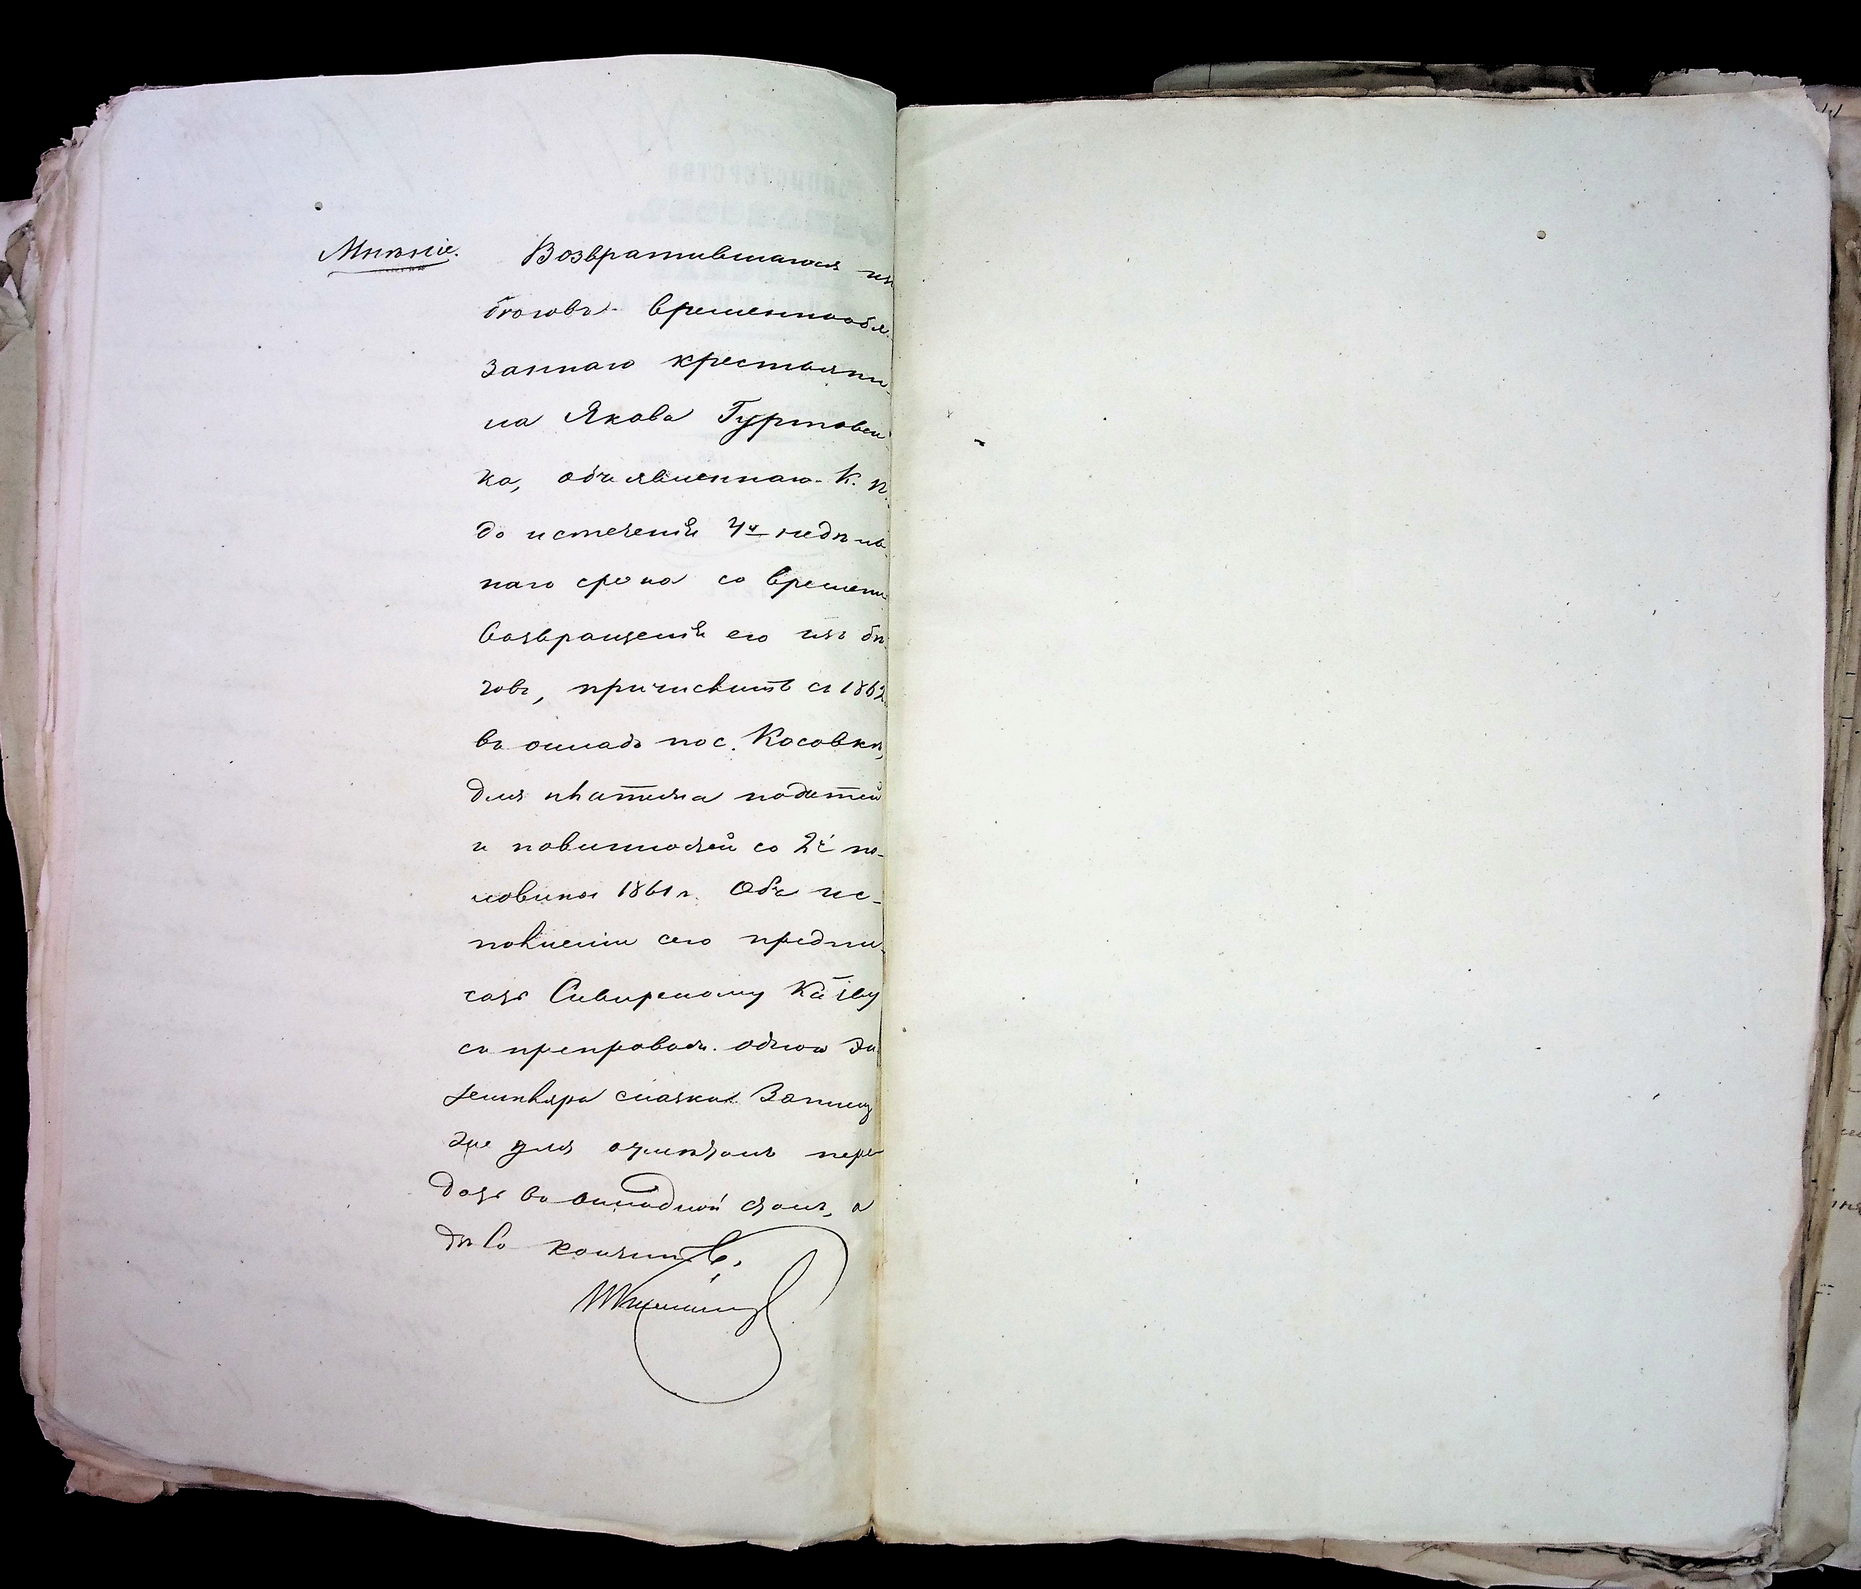 Мнѣніе.
Возвратившагося изъ
бѣговъ временнообя-
заннаго крестьяни-
на Якова Гуртовен
ка, объявленнаго К. П.
до истеченія 4й недѣль-
наго срока со времени
возвращенія его изъ бѣ-
говъ, причислить съ 1862
въ окладъ пос. Косовки,
для платежа податей
и повинностей со 2й по-
ловины 1861 г. Объ ис-
полненіи сего предпи-
сать Сквирскому Каз-ву
съ препровож. одного эк
земпляра сказки
для отмѣтокъ пере
дать въ окладной столъ, а
дѣло кончить.